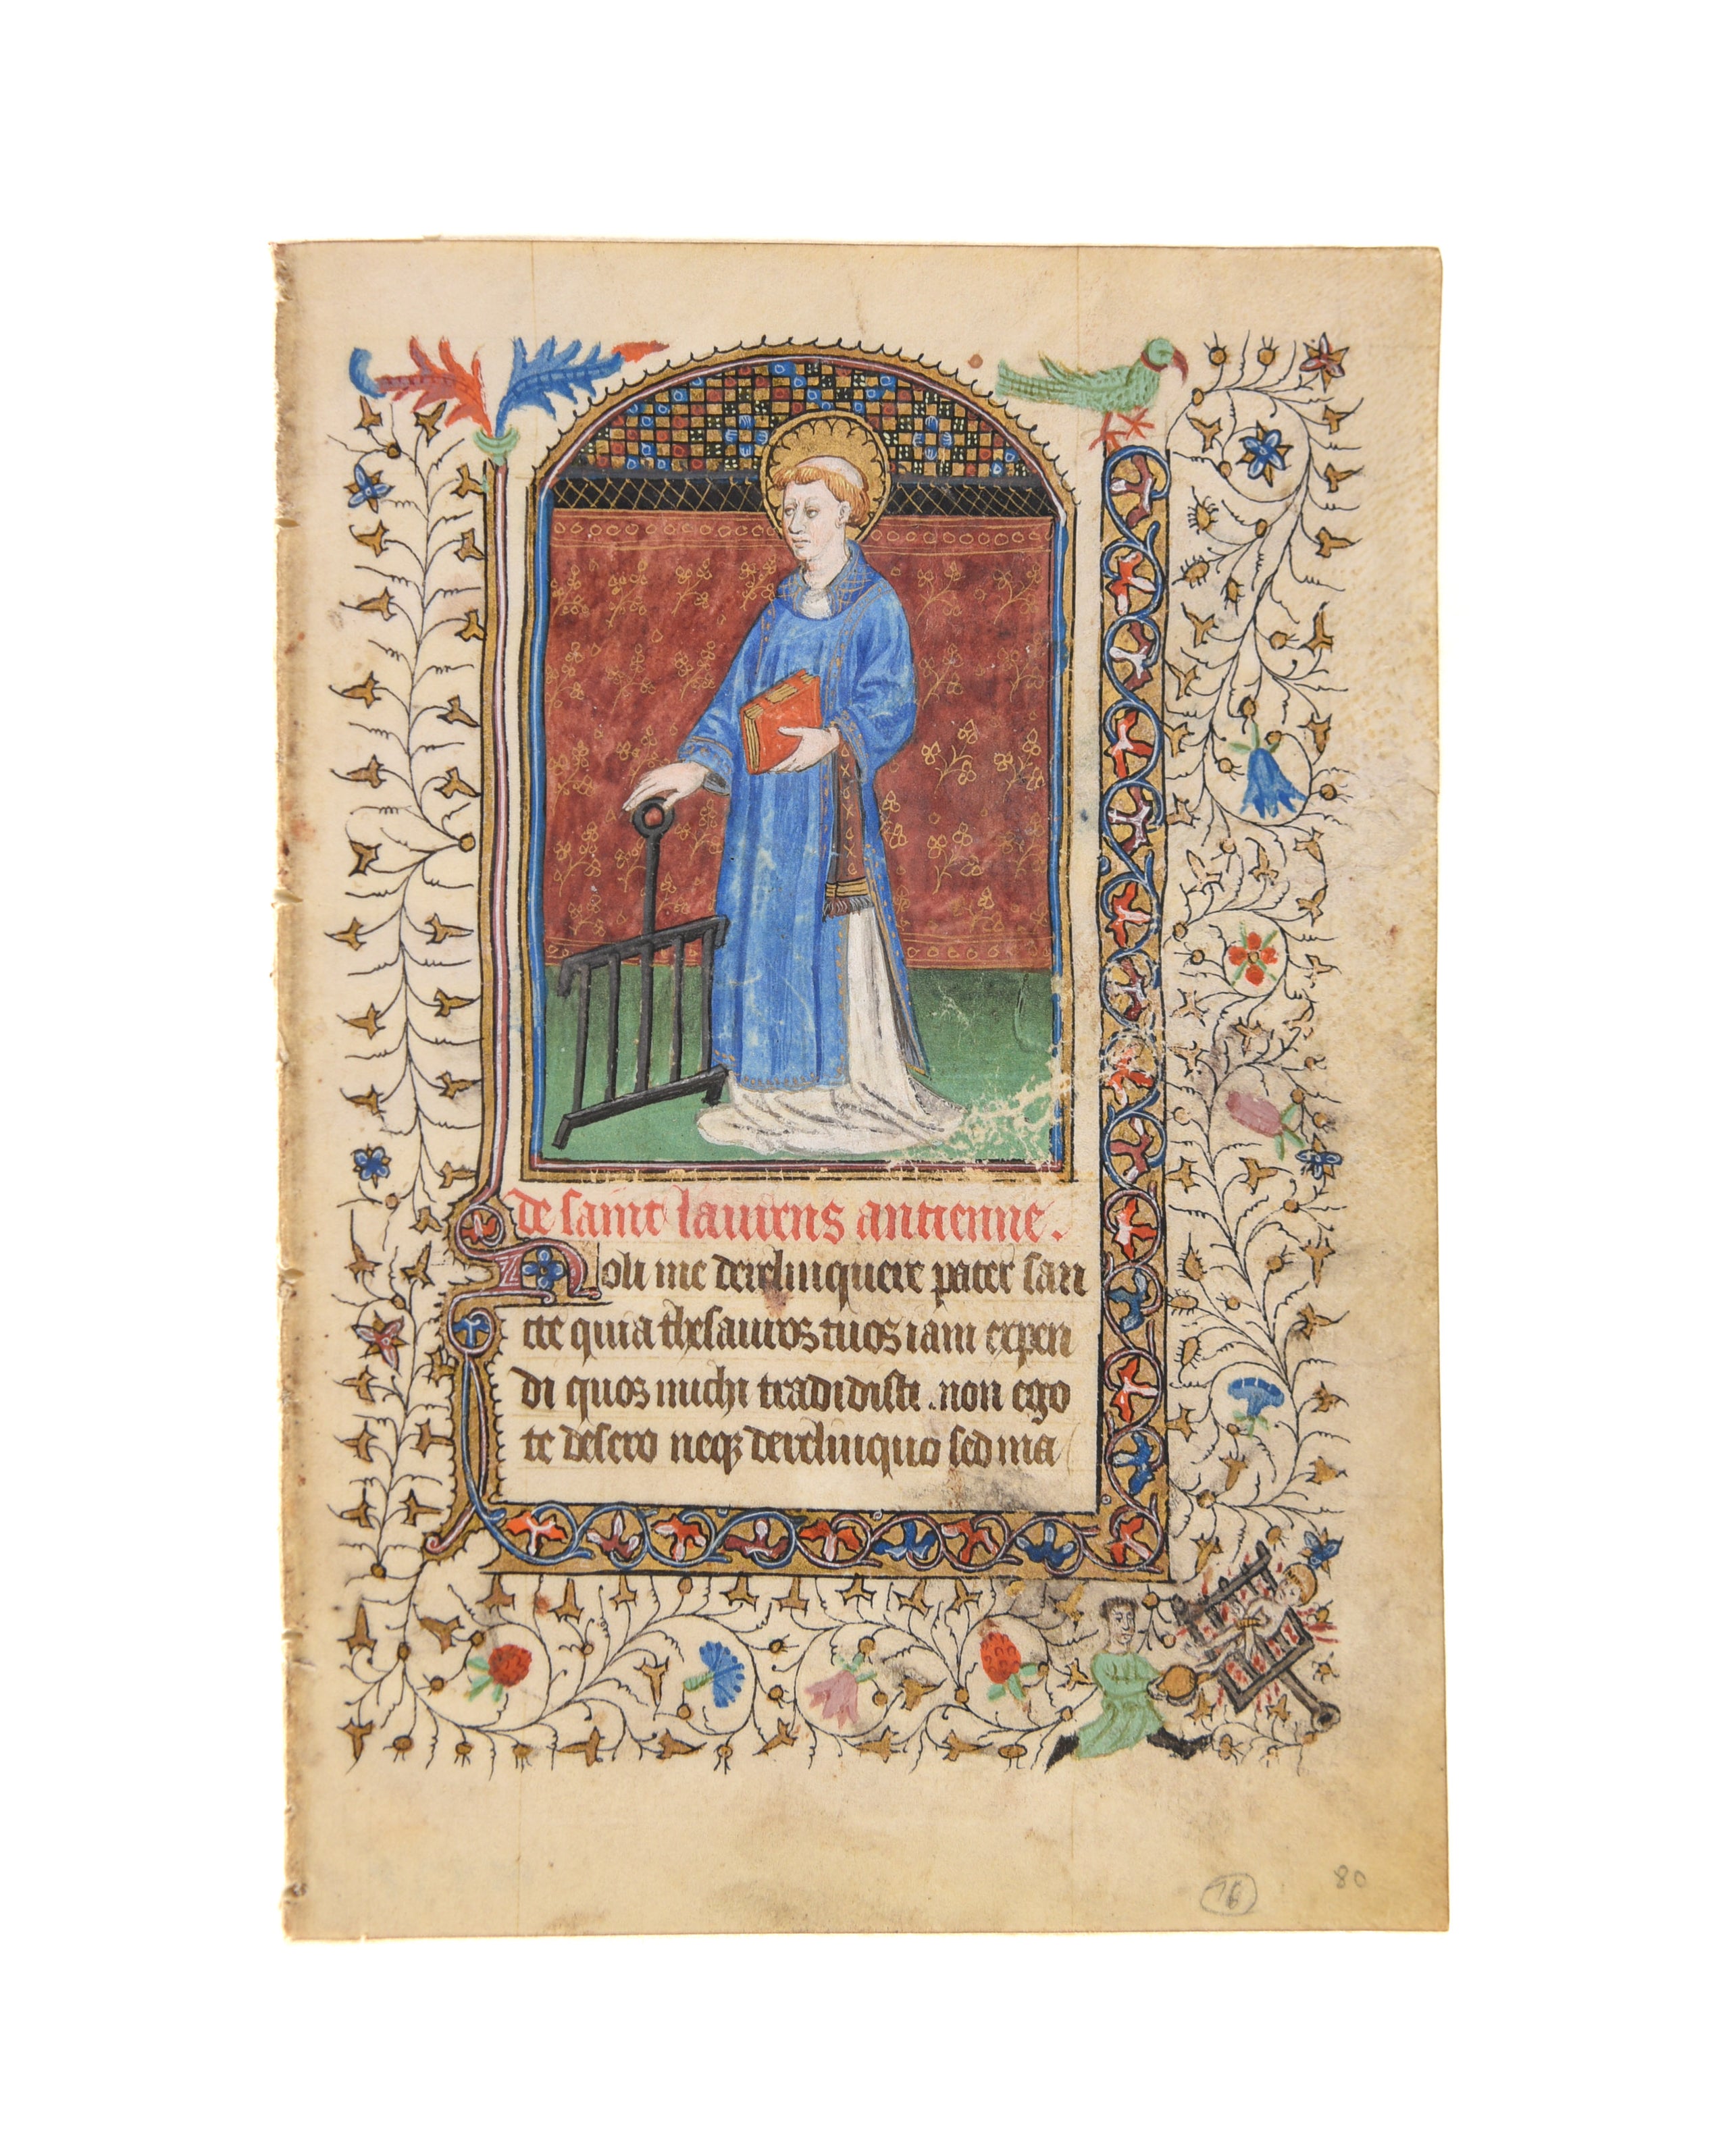 de saint laurens antienne.
Noli me derelinquere pater san
cte quia thesauros tuos iam expen
di quos michi tradidisti . non ego
te desero neqȝ derelinquo sed ma
16
80